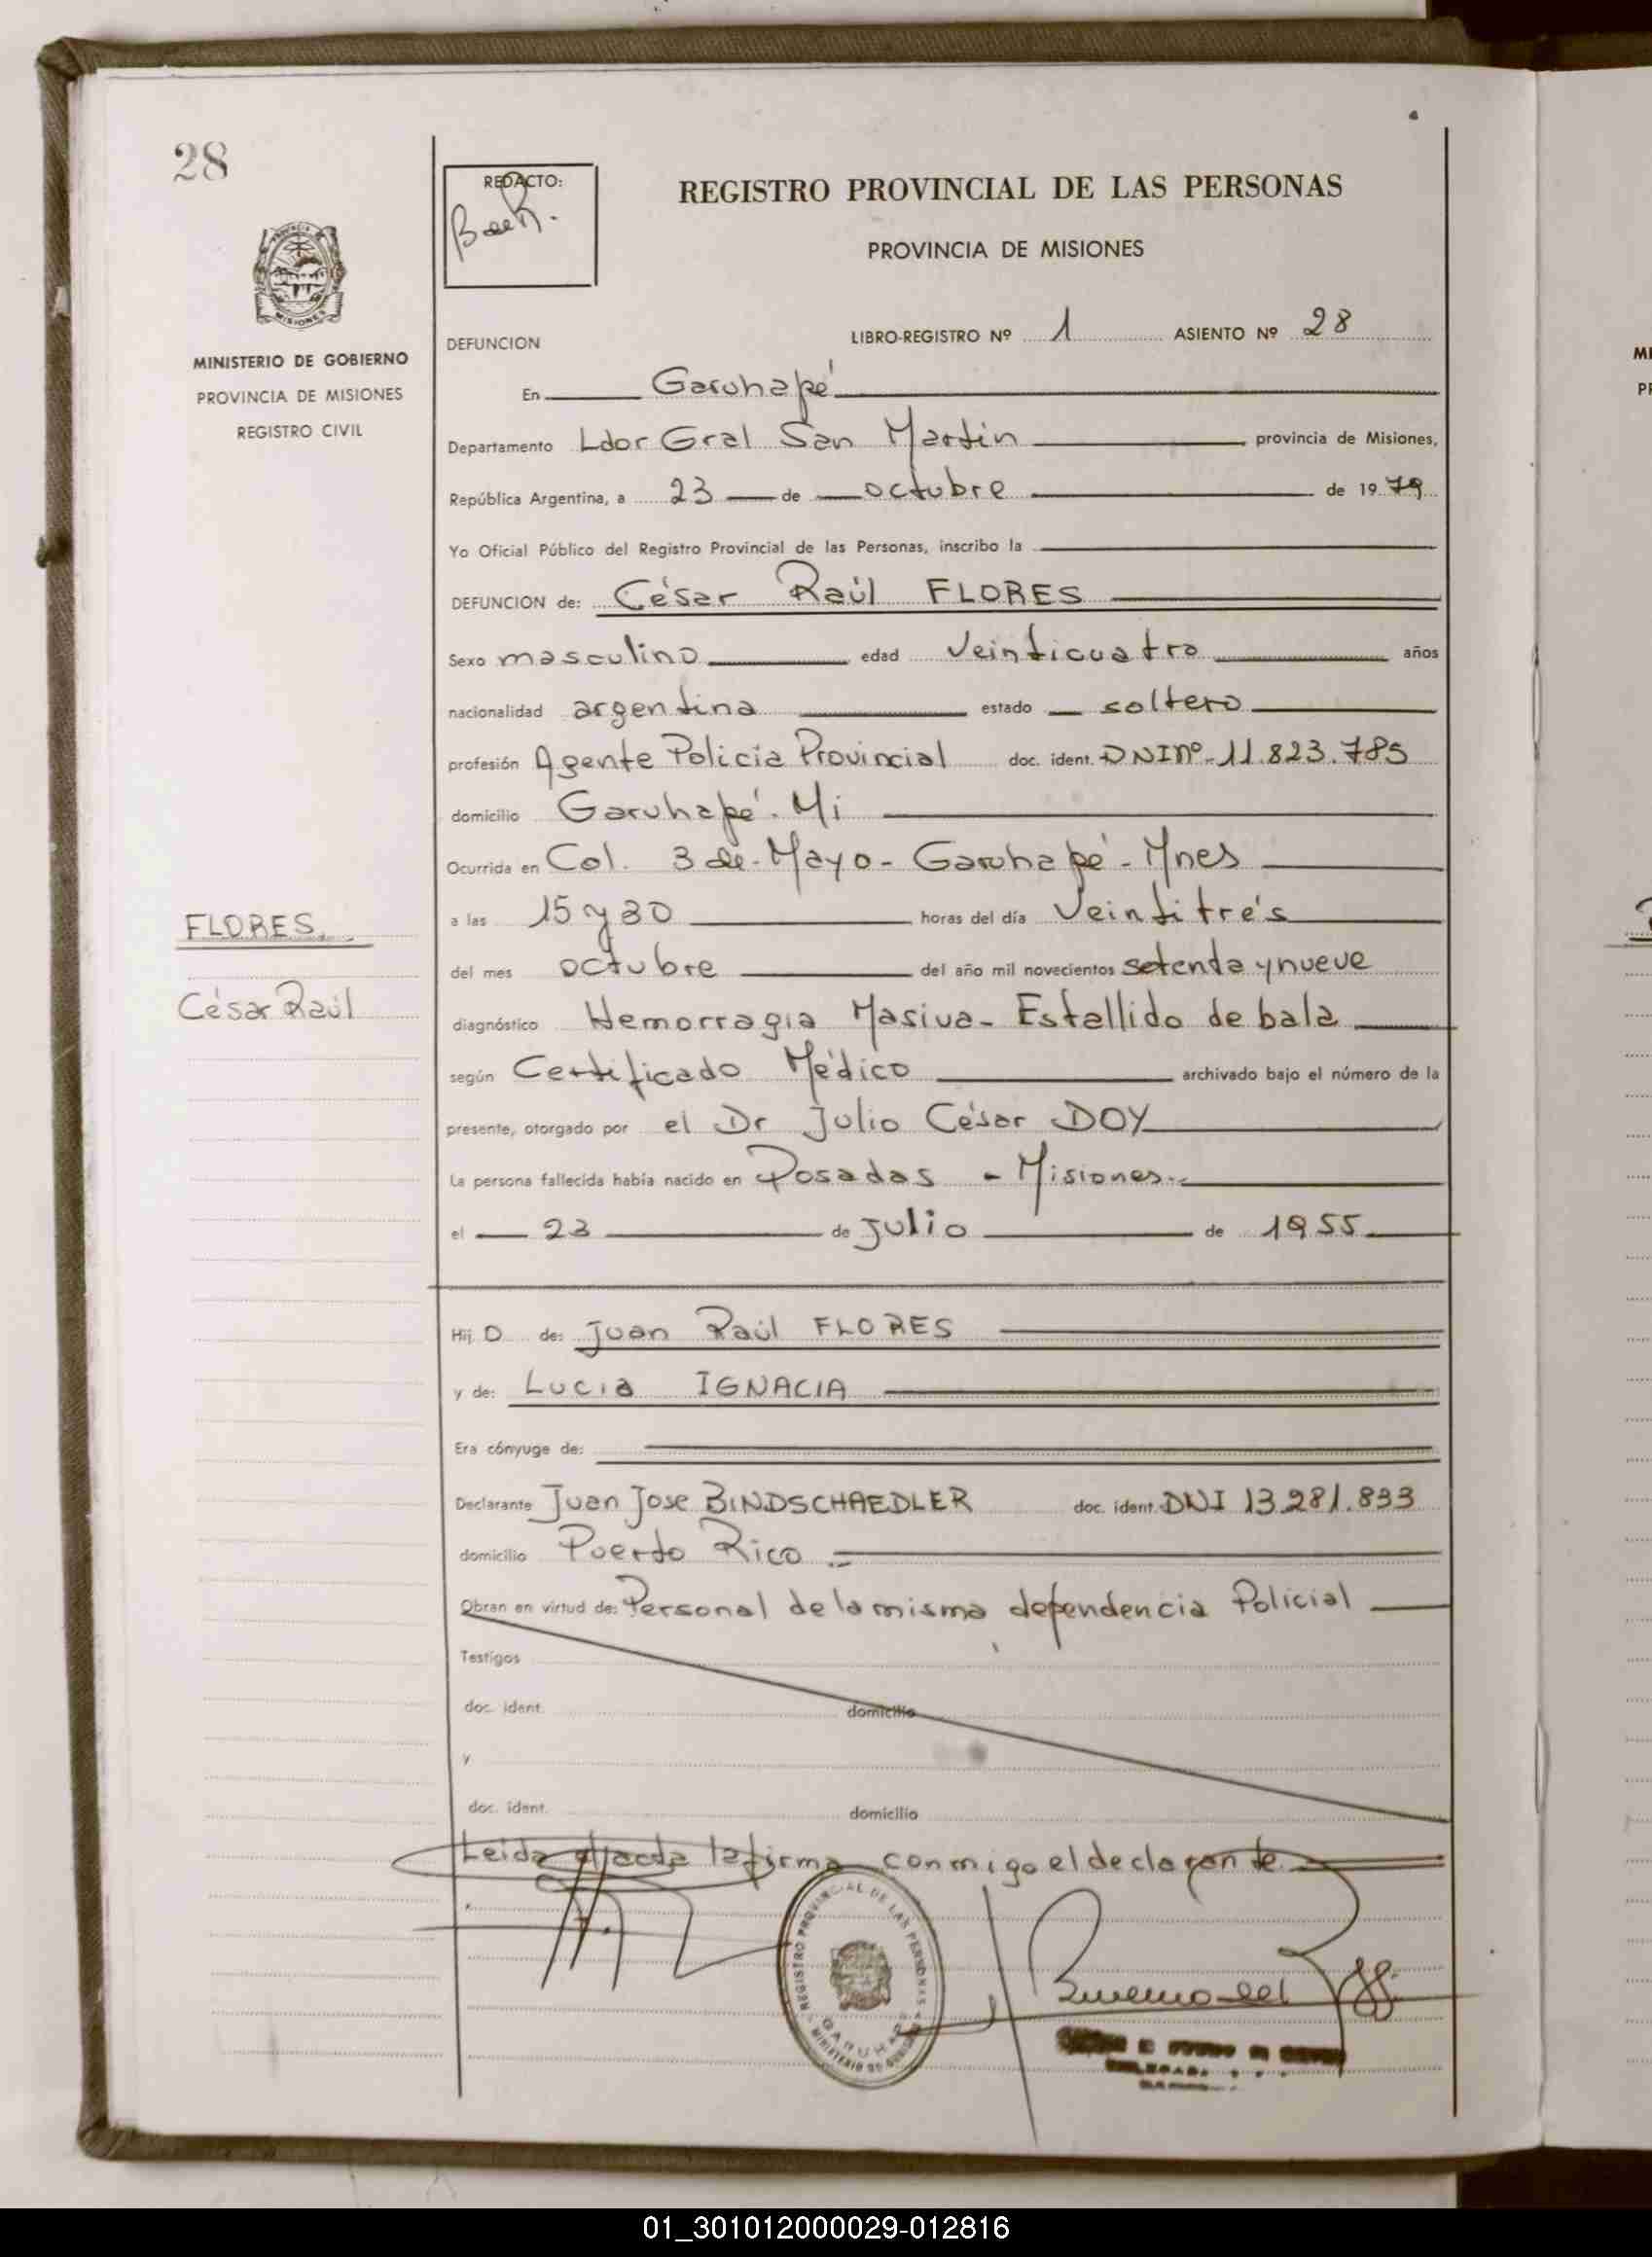 28
REDACTO:
REGISTRO PROVINCIAL DE LAS PERSONAS
PROVINCIA DE MISIONES
MISIONES
MINISTERIO DE GOBIERNO
PROVINCIA DE MISIONES
REGISTRO CIVIL
DEFUNCION LIBRO-REGISTRO Nº 1 ASIENTO Nº 28
En Garuhapé
Departamento Ldor Gral San Martín provincia de Misiones,
República Argentina, a 23 de octubre de 19 79
Yo Oficial Público del Registro Provincial de las Personas, inscribo la
DEFUNCION de: César Raúl FLORES
Sexo masculino edad Veinticuatro años
nacionalidad argentina estado soltero
profesión Agente Policía Provincial doc. ident. DNI nº 11.823.785
domicilio Garuhapé. Mi
Ocurrida en Col. 3 de Mayo - Garuhapé - Mnes
a las 15 y 30 horas del día Veintitrés
del mes octubre del año mil novecientos setenta y nueve
diagnóstico Hemorragia Masiva - Estallido de bala
según Certificado Médico archivado bajo el número de la
presente, otorgado por el Dr Julio César DOY
La persona fallecida había nacido en Posadas - Misiones.-
el 23 de Julio de 1955
FLORES,
César Raúl
Hij o de: Juan Raúl FLORES
y de: Lucia IGNACIA
Era cónyuge de:
Declarante Juan Jose BINDSCHAEDLER doc. ident. DNI 13.281.833
domicilio Puerto Rico.-
Obran en virtud de: Personal de la misma dependencia Policial
Testigos
doc. ident. domicilio
y
doc. ident. domicilio
Leida el acta la firma conmigo el declarante.
REGISTRO PROVINCIAL DE LAS PERSONAS
MINISTERIO DE GOBIERNO
GARUHAPE
01_301012000029-012816